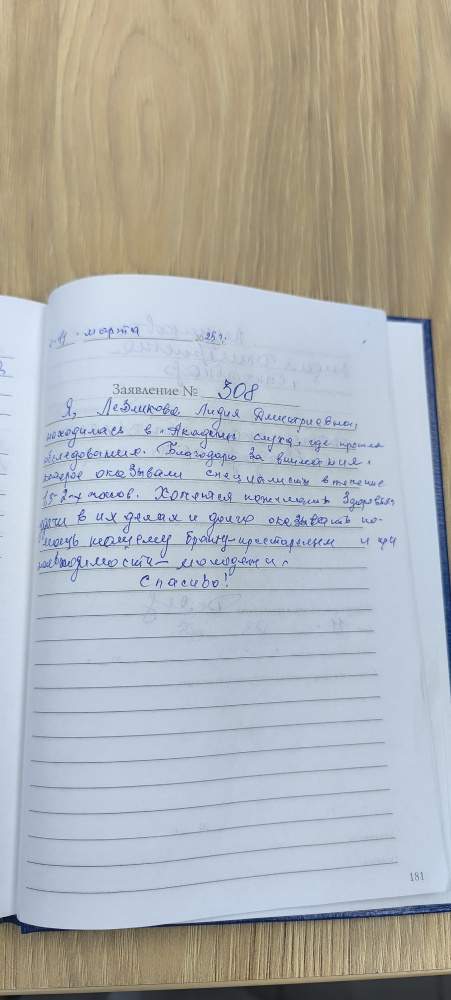 "19" марта 2025 г.
Заявление № 308
Я, Лидия Дмитриевна,
находилась в "Академии слуха", где прошла
обследования. Благодарю за внимания,
которое оказывали специалисты в течение
1,5-2-х часов. Хотелося пожелать здоровья,
удачи в их делах и долго оказывать по-
мощь нашему брату-престарелым и при
необходимости - молодёжи.
Спасибо!
181